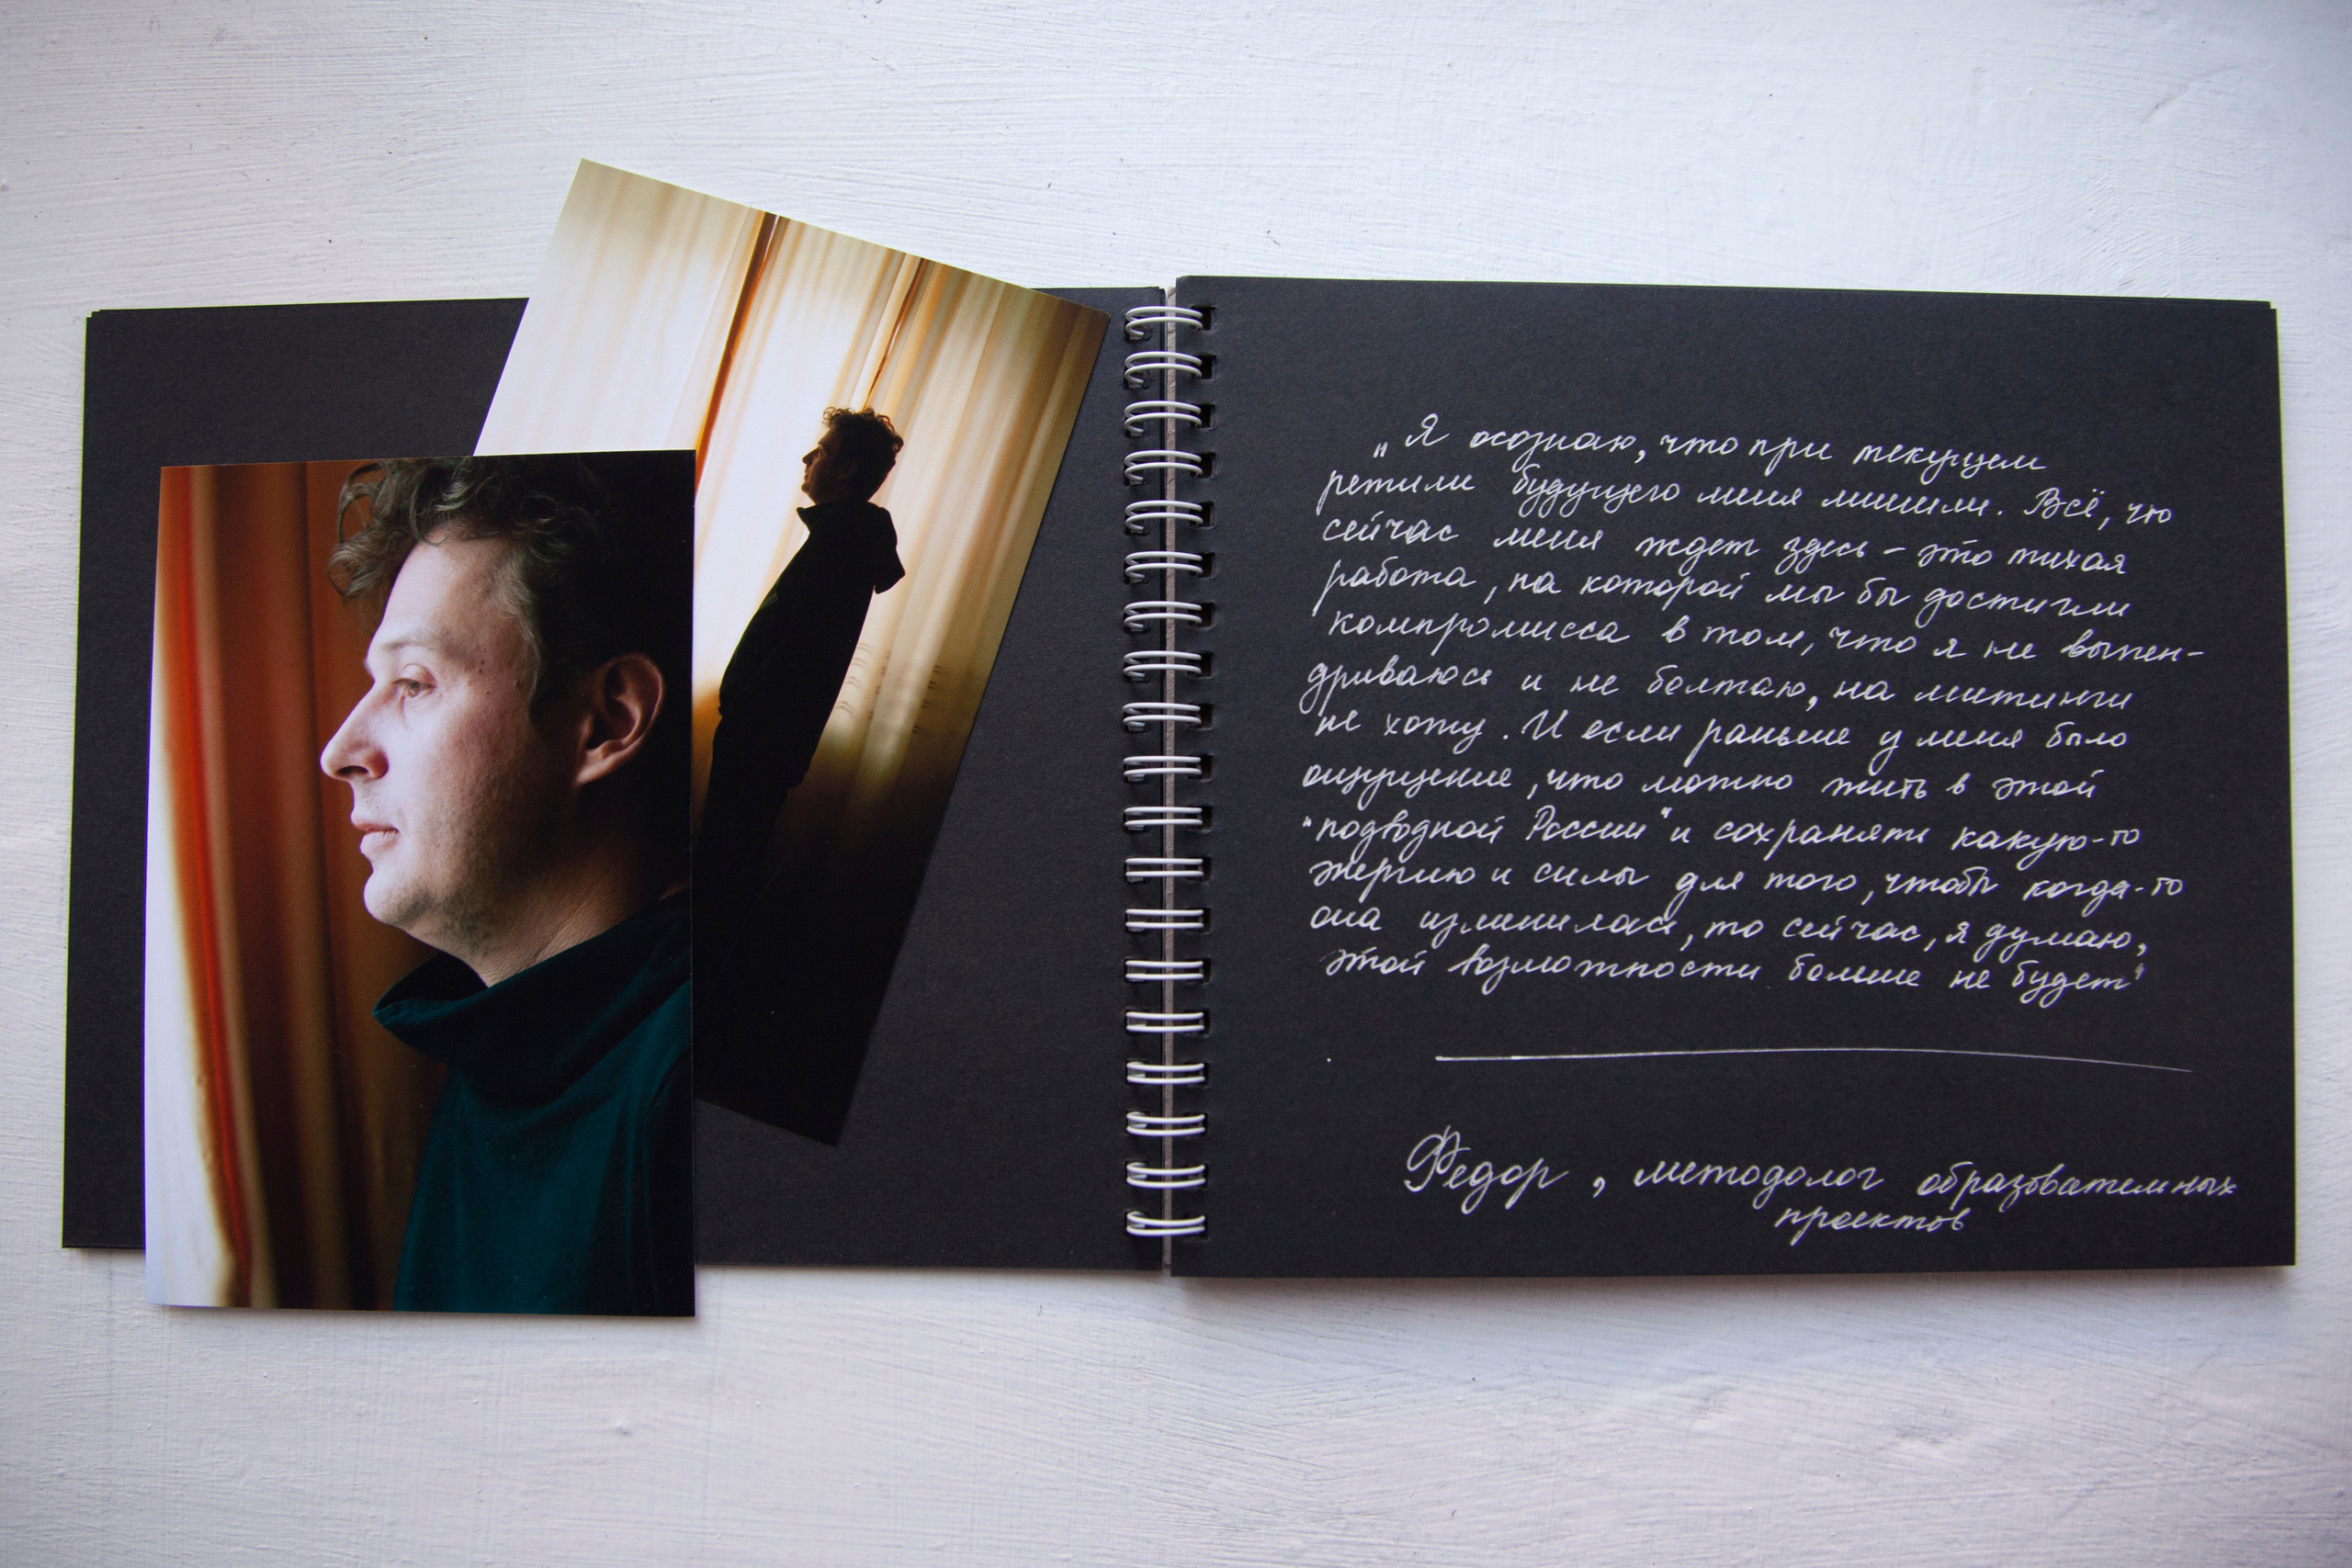 „Я осознаю, что при текущем
режиме будущего меня лишили. Всё, что
сейчас меня ждет здесь – это тихая
работа, на которой мы бы достигли
компромисса в том, что я не выпен-
дриваюсь и не болтаю, на митинги
не хожу. И если раньше у меня было
ощущение, что можно жить в этой
"подводной России" и сохранять какую-то
энергию и силы для того, чтобы когда-то
она изменилась, то сейчас, я думаю,
этой возможности больше не будет"
Федор, методолог образовательных
проектов